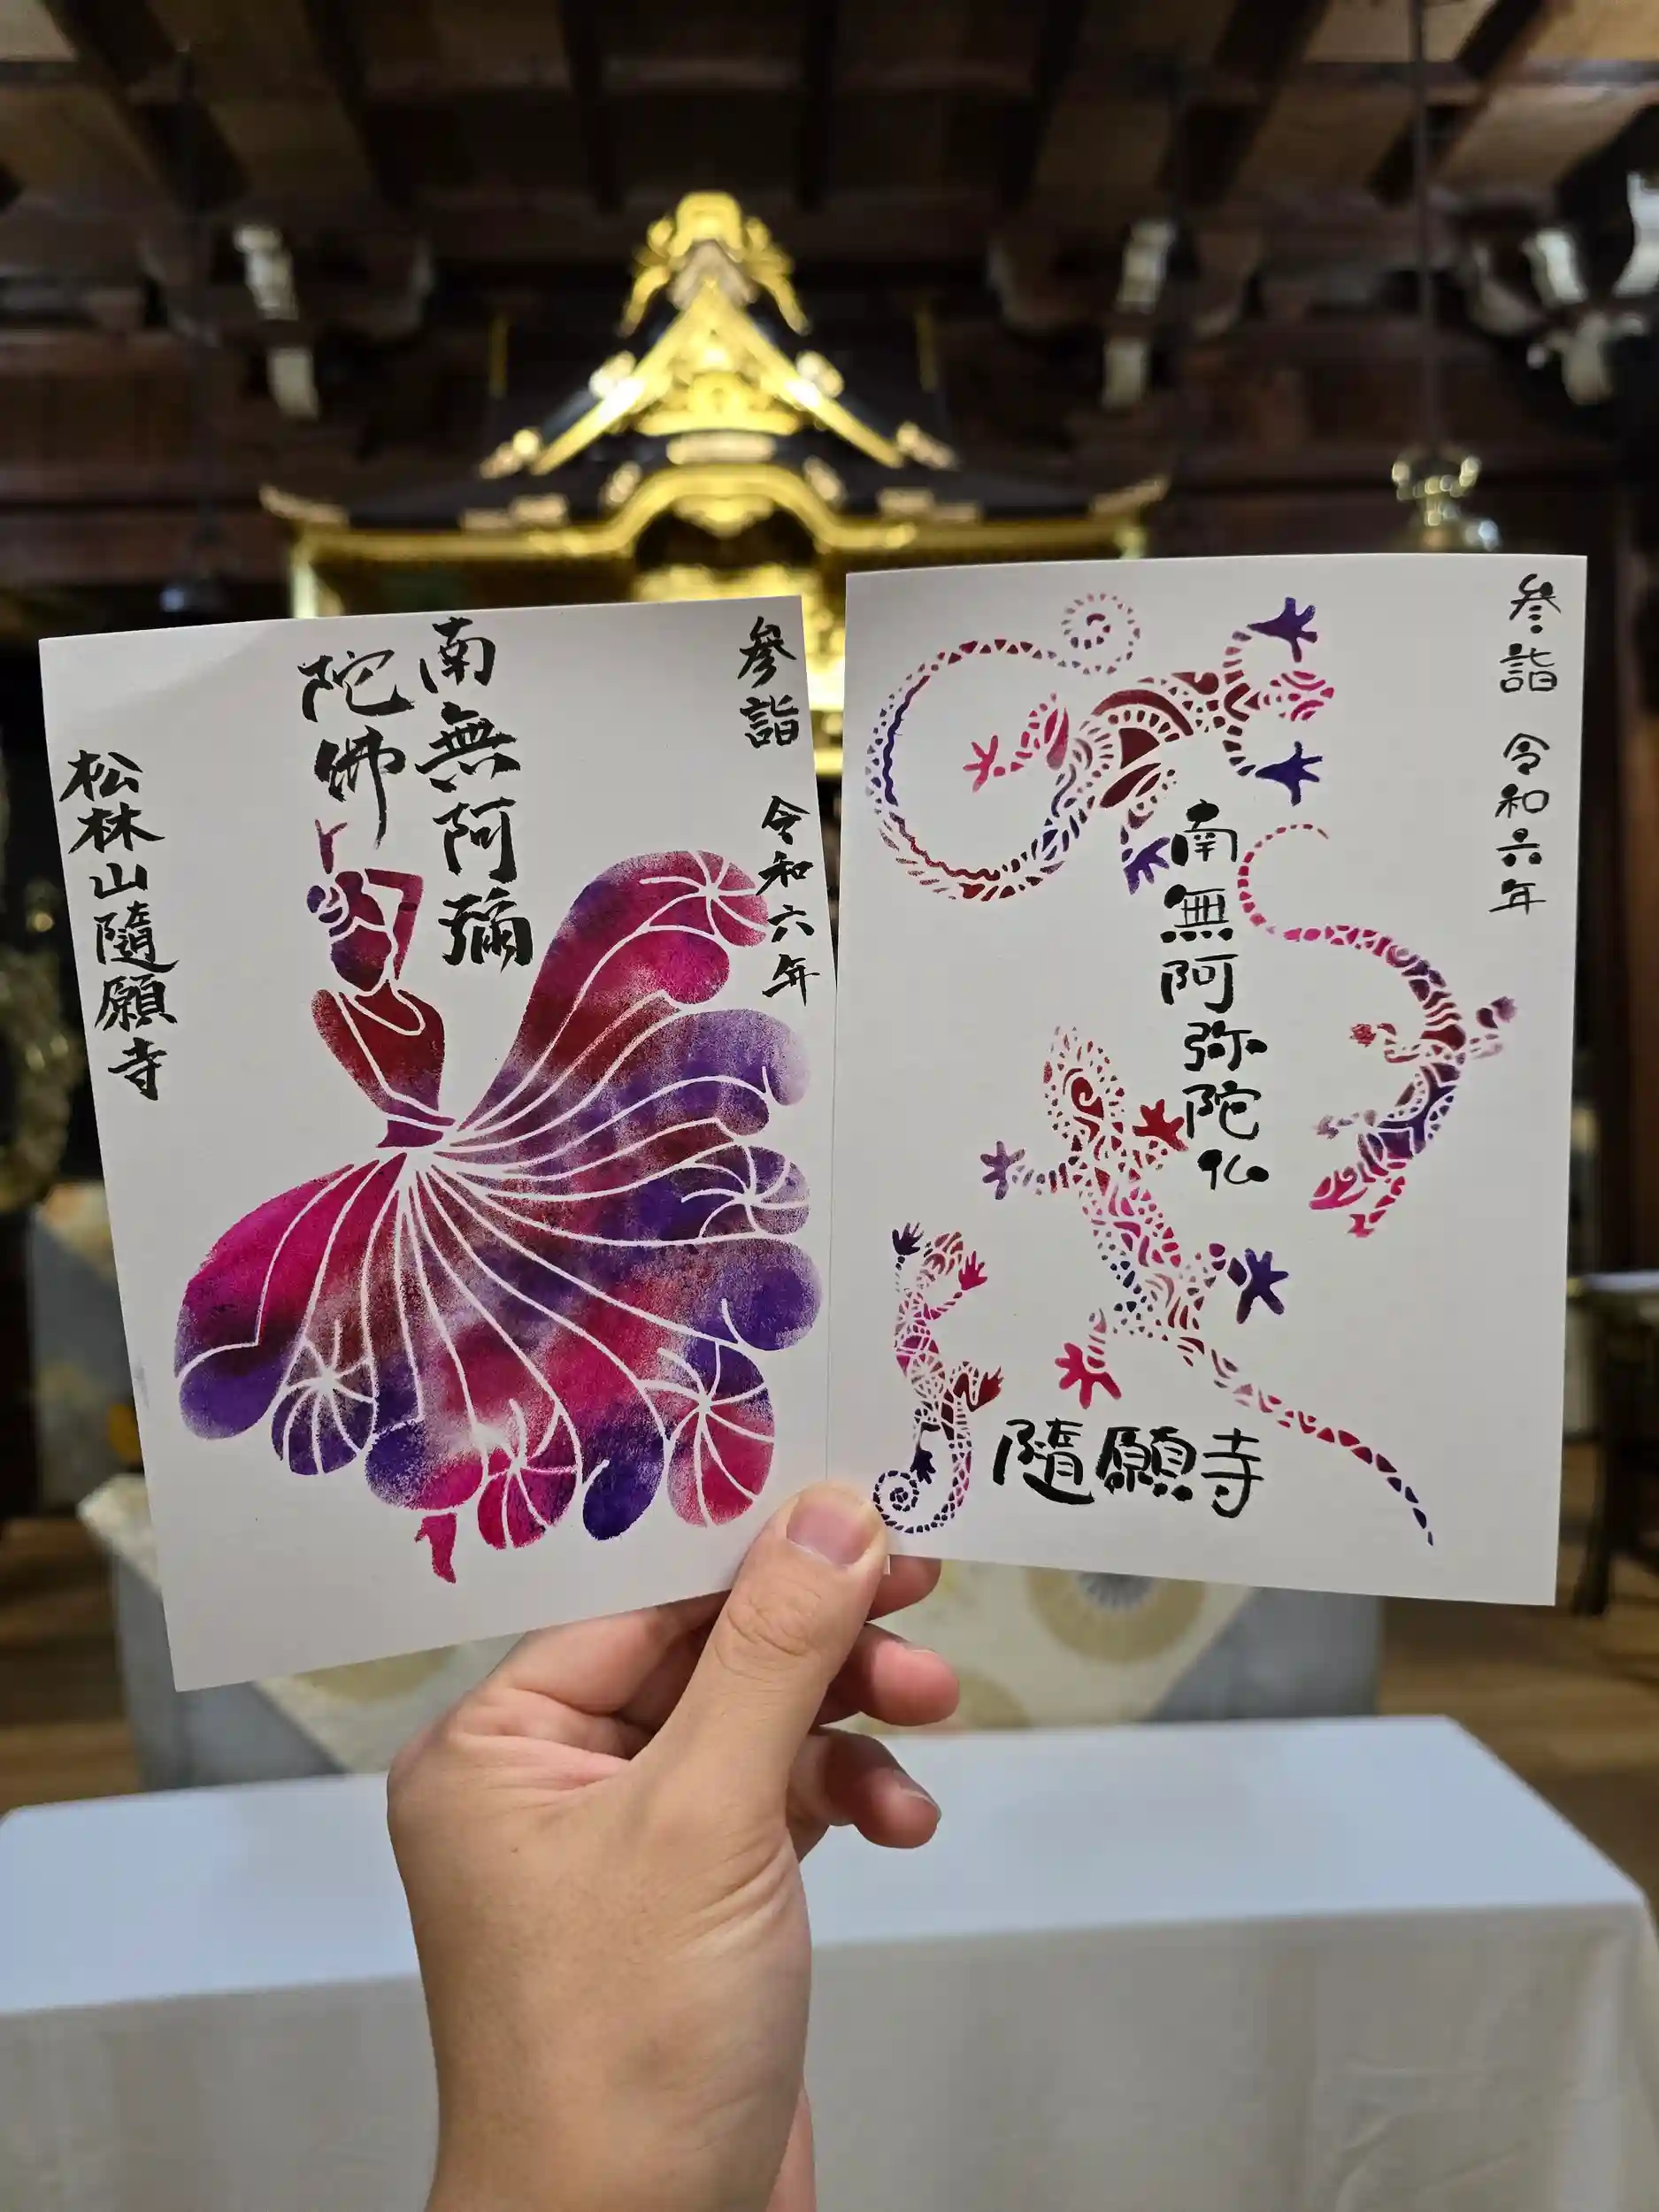 參詣 令和六年
南無阿彌
陀佛
松林山隨願寺
参詣 令和六年
南無阿弥陀仏
隨願寺